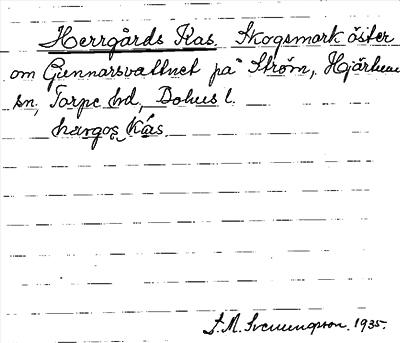 Herrgårds Kas. Skogsmark öster
om Gunnarsvattnet på Ström, Hjärtum
sn, Torpe hd, Bohus l.
Kås.
S. M. Svenungsson. 1935.